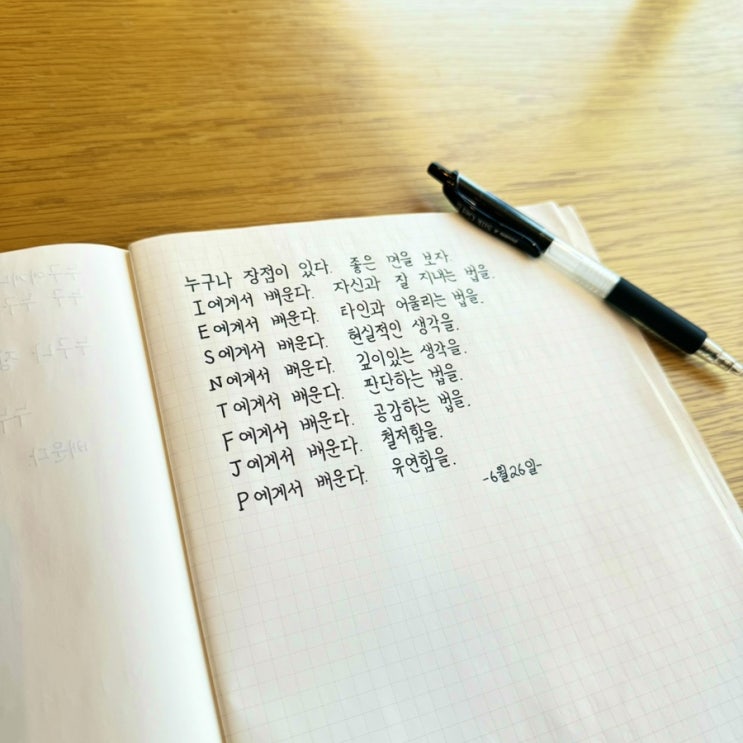 누구나 장점이 있다. 좋은 면을 보자.
I에게서 배운다. 자신과 잘 지내는 법을.
E에게서 배운다. 타인과 어울리는 법을.
S에게서 배운다. 현실적인 생각을.
N에게서 배운다. 깊이있는 생각을.
T에게서 배운다. 판단하는 법을.
F에게서 배운다. 공감하는 법을.
J에게서 배운다. 철저함을.
P에게서 배운다. 유연함을.
-6월26일-